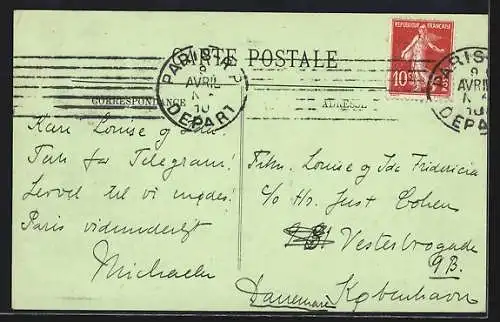 CARTE POSTALE
RÉPUBLIQUE FRANÇAISE
10c
PARIS
9
AVRIL
10
DEPART
PARIS
9
AVRIL
10
DEPART
CORRESPONDANCE
ADRESSE
Kære Louise og
Tak for Telegram!
Levvel til vi mødes!
Paris vidunderligt
Michaela
Frkn. Louise og Ida Fridericia
c/o Hr. Just Cohen
Vesterbrogade
9B.
Danemark København